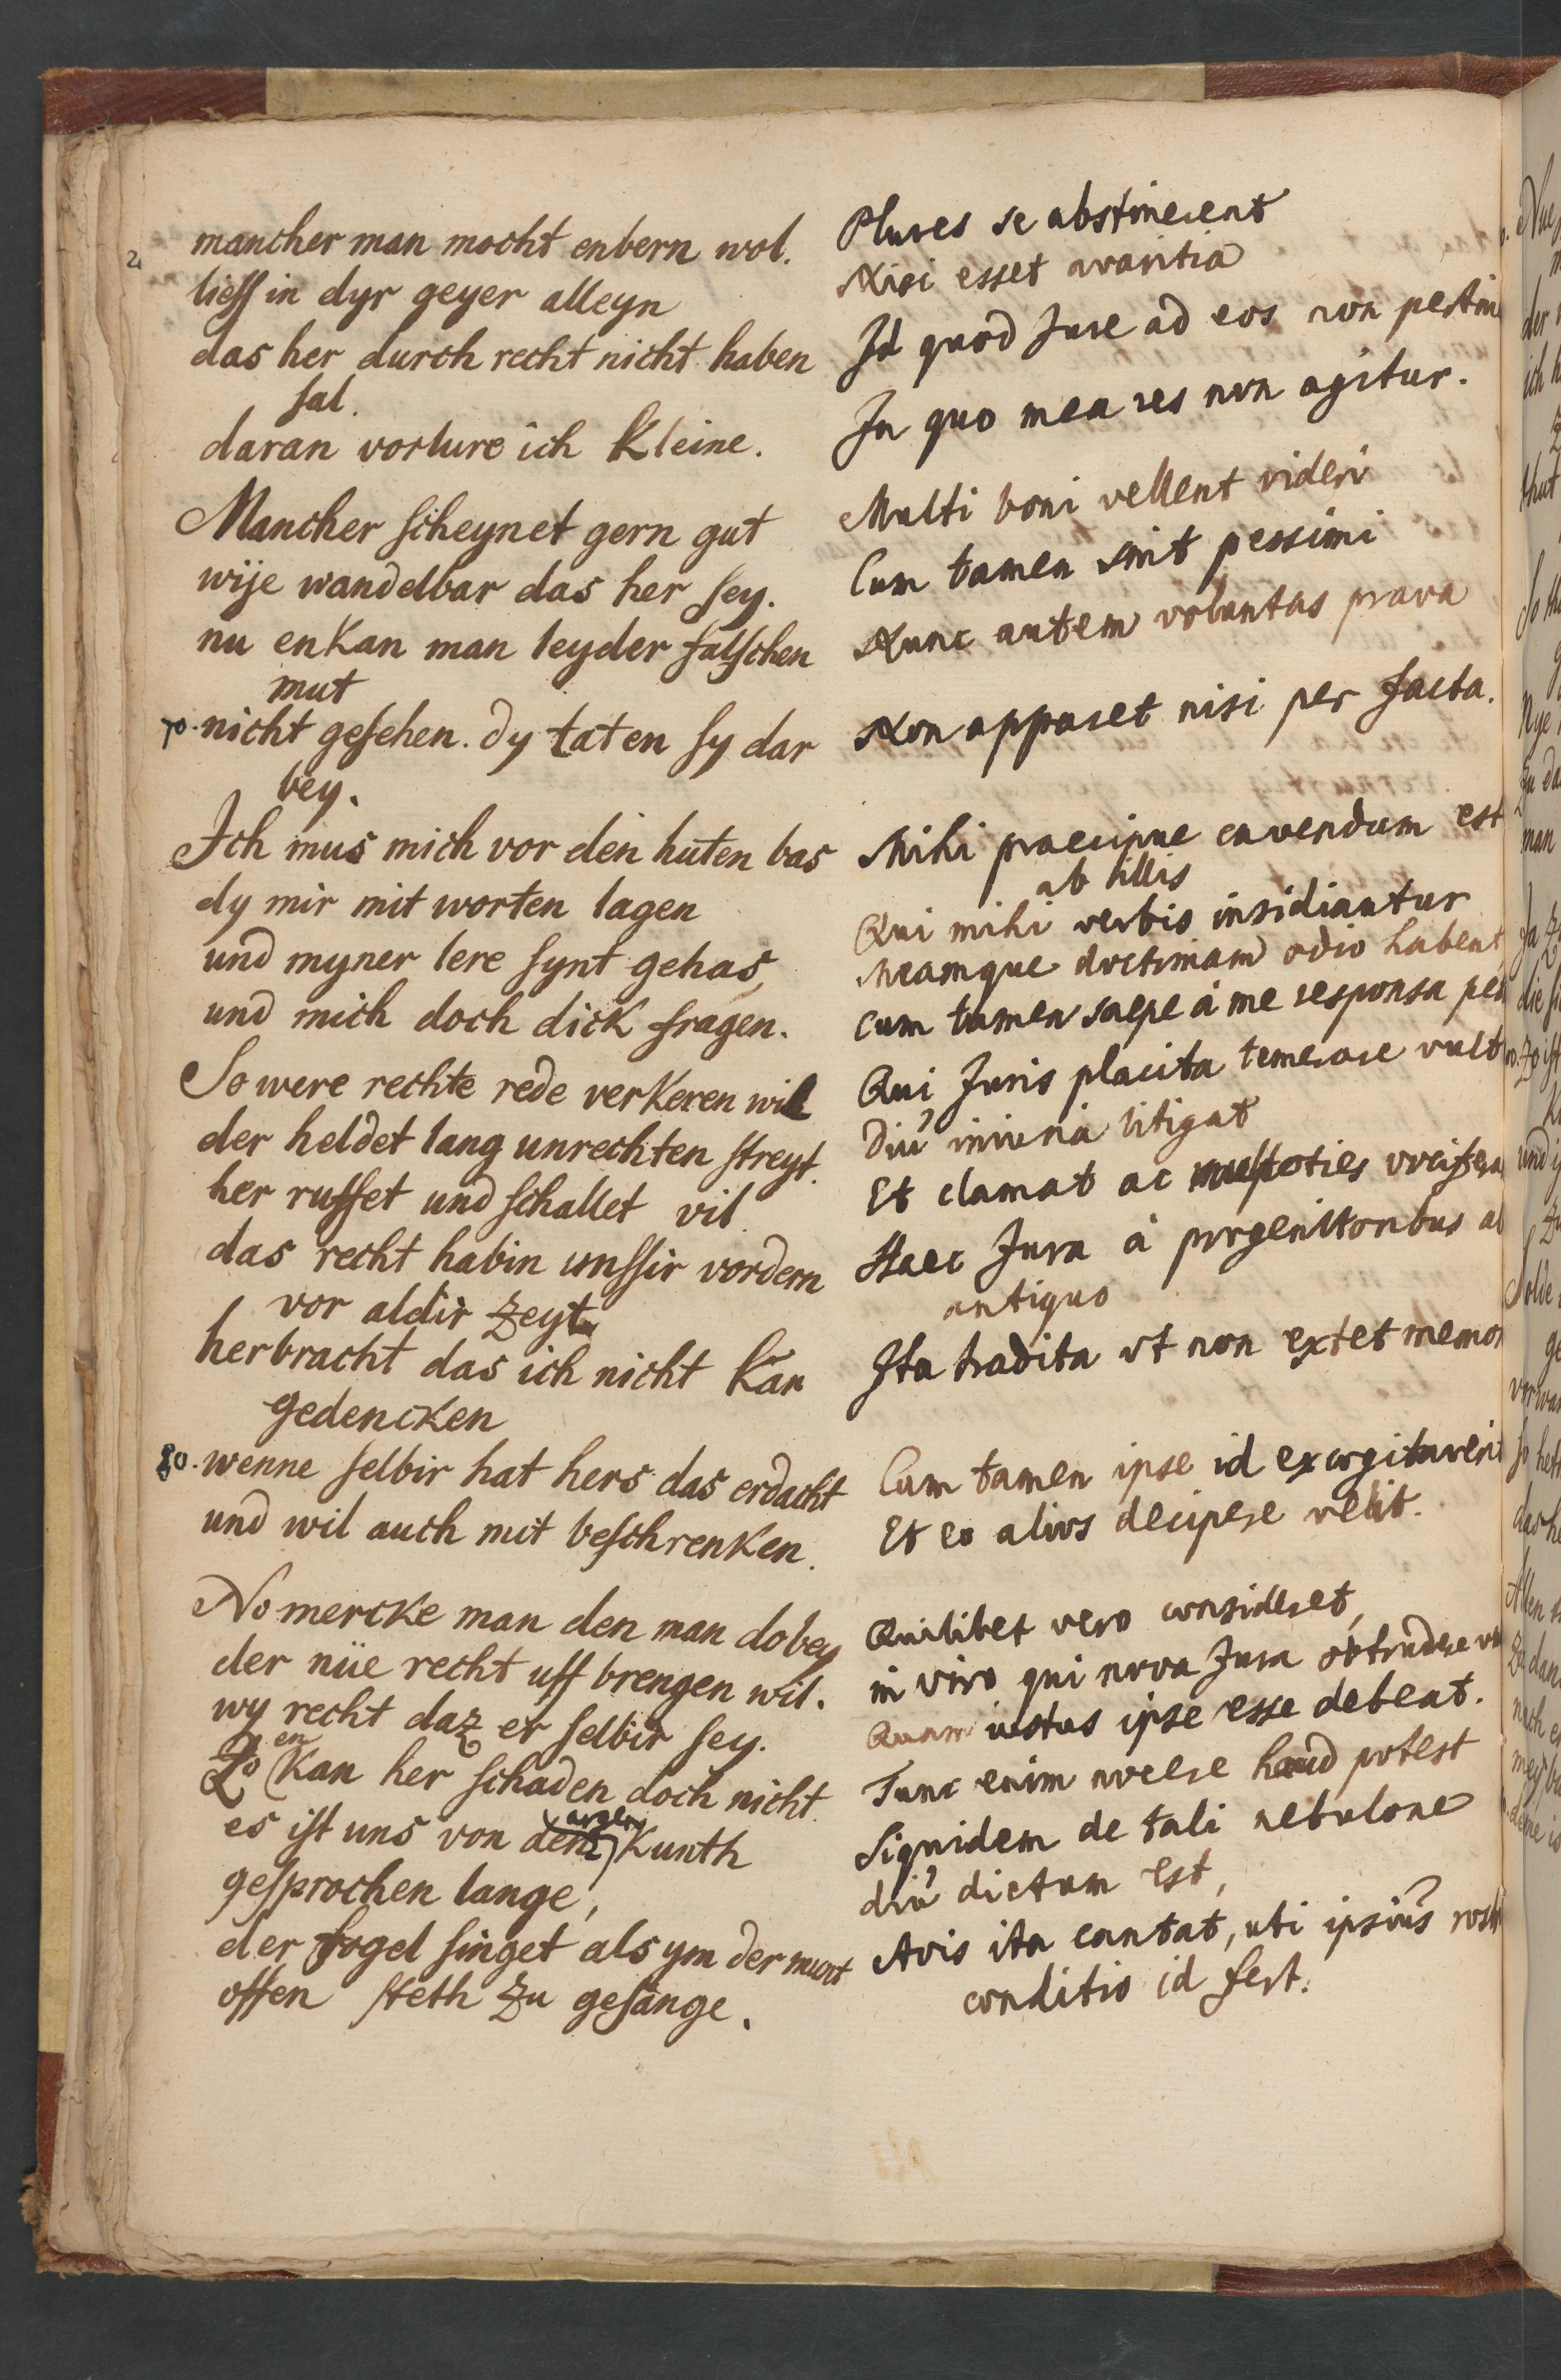 2.
mancher man mocht enbern wol.
liess in dyr geyer alleyn
das her durch recht nicht haben
sal.
daran vorlure ich Kleine.
Mancher scheynet gern gut
wije wandelbar das her sey.
nu enkan man leyder falschen
mut
70. nicht gesehen. dy taten sy dar
bey.
Ich mus mich vor den huten bas
dy mir mit worten lagen
und myner lere synt gehas,
und mich doch dick fragen.
So were rechte rede verkeren wil
der heldet lang unrechten streyt.
her ruffet und schallet vil
das recht habin unssir vordern
vor aldir zeyt
herbracht das ich nicht Kan
gedencken
80. wenne selbir hat hers das erdacht
und wil auch mit beschrenken.
No mercke man den man dobey
der nüe recht uff brengen wil.
wy recht daz er selbir sey.
Zo en Kan her schaden doch nicht
es ist uns von argen Kunth
gesprochen lange,
der fogel singet als ym der munt
offen steth zu gesange.
Plures se abstinerent
Nisi esset avaritia
Id quod Jure ad eos non pertin
In quo mea res non agitur.
Multi boni vellent videri
Cum tamen sint pessimi
Nunc autem voluntas prava
Non apparet nisi per facta.
Mihi praecipue cavendum est
ab illis
Qui mihi verbis insidiantur
Meamque doctrinam odio habent
Cum tamen saepe à me responsa pet
Qui Juris placita temerare vult
Diu iniuria litigat
Et clamat ac multoties vocifera
Haec Jura à progenitoribus ab
antiquo
Ita tradita ut non extet memor
Cum tamen ipse id excogitaverit
Et eo alios decipere velit.
Quilibet vero consideret,
in viro qui nova Jura obtrudere vu
Quam iustus ipse esse debeat.
Tunc enim nocere haud potest
Siquidem de tali nebulone
diu dictum est,
Avis ita cantat, uti ipsius rostr
conditio id fert.